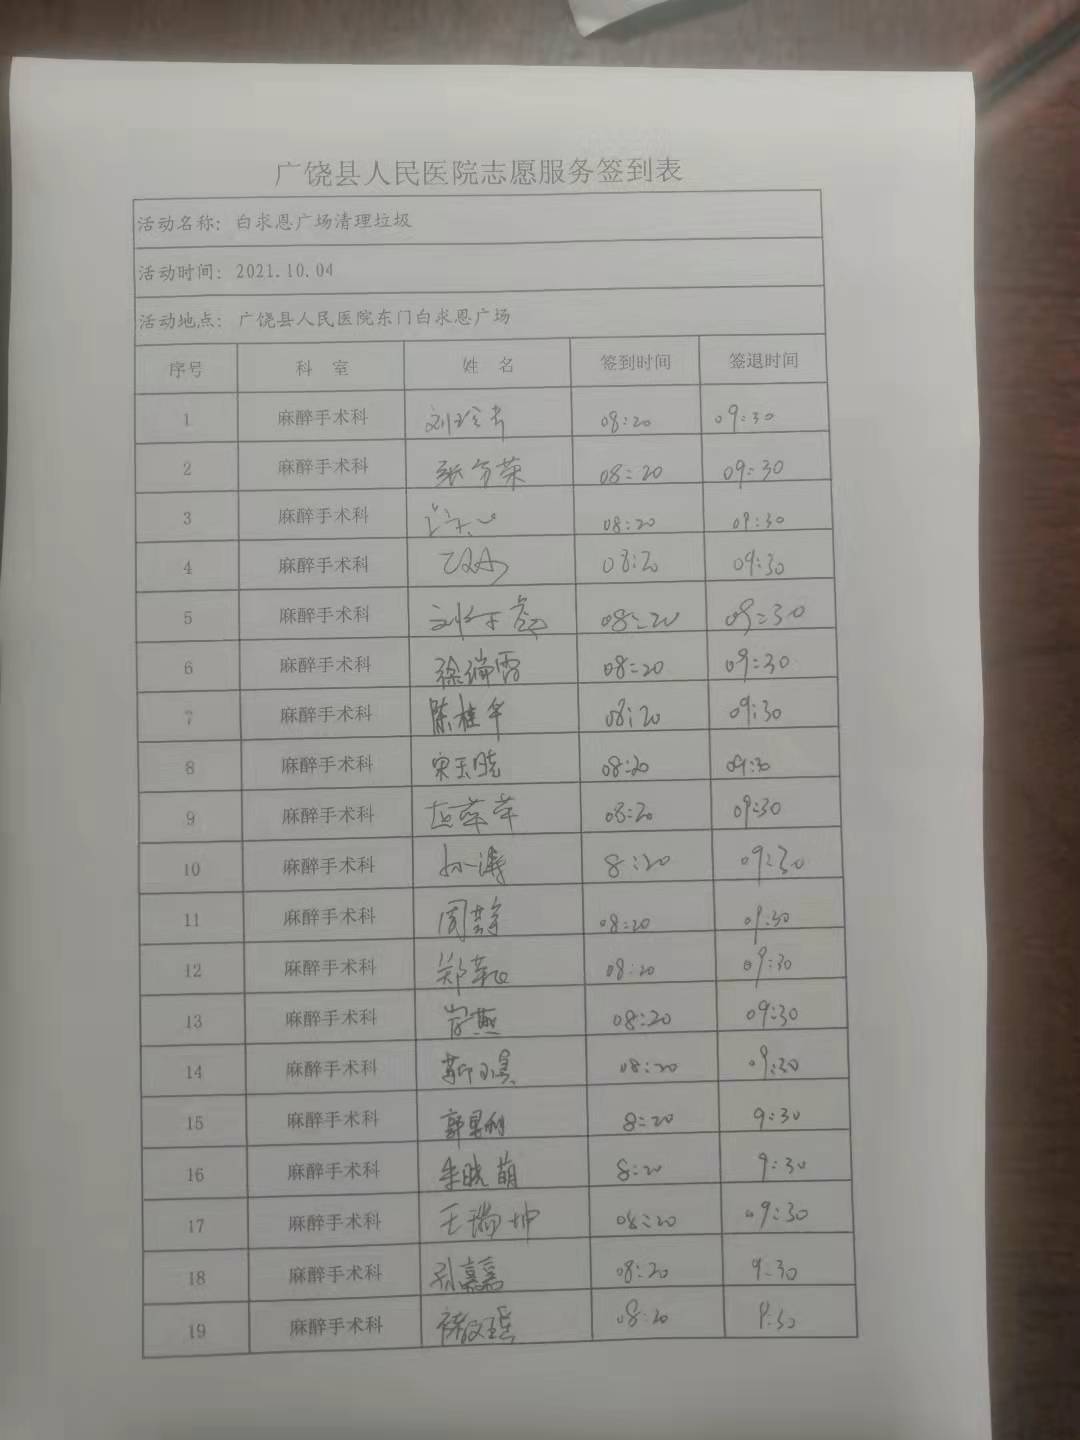 广饶县人民医院志愿服务签到表
活动名称：白求恩广场清理垃圾
活动时间：2021.10.04
活动地点：广饶县人民医院东门白求恩广场
序号 科 室 姓 名 签到时间 签退时间
1 麻醉手术科 08:20 09:30
2 麻醉手术科 08:20 09:30
3 麻醉手术科 08:20 09:30
4 麻醉手术科 08:20 09:30
5 麻醉手术科 08:20 09:30
6 麻醉手术科 徐瑞霞 08:20 09:30
7 麻醉手术科 陈桂华 08:20 09:30
8 麻醉手术科 宋玉晓 08:20 09:30
9 麻醉手术科 赵苹苹 08:20 09:30
10 麻醉手术科 孙涛 8:20 09:30
11 麻醉手术科 08:20 09:30
12 麻醉手术科 08:20 09:30
13 麻醉手术科 08:20 09:30
14 麻醉手术科 08:20 09:30
15 麻醉手术科 郭果利 8:20 9:30
16 麻醉手术科 朱晓萌 8:20 9:30
17 麻醉手术科 王瑞坤 08:20 09:30
18 麻醉手术科 孙嘉嘉 08:20 9:30
19 麻醉手术科 08:20 9:30